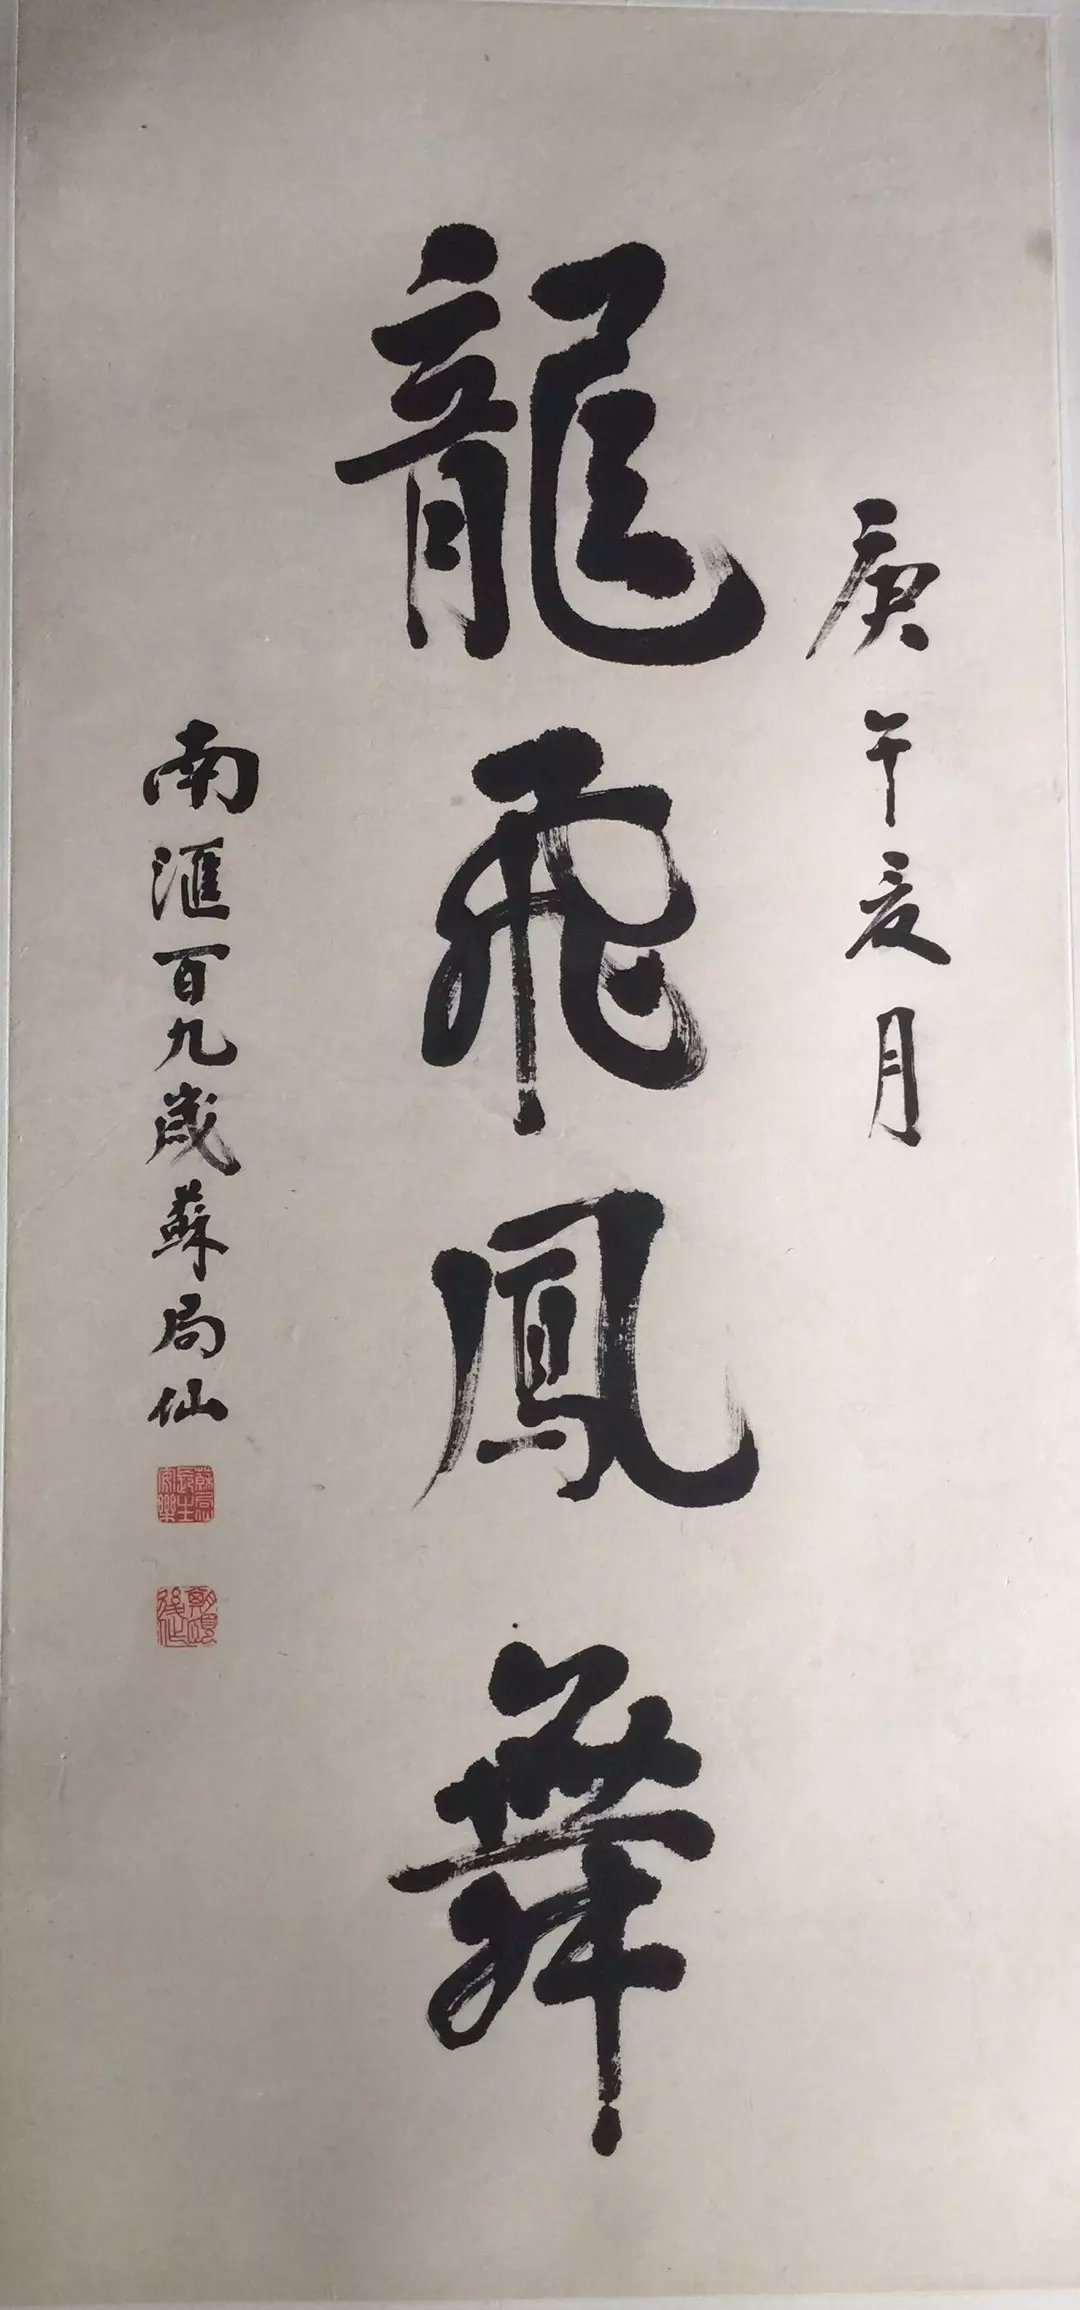 庚午夏月
龍飛鳳舞
南滙百九歲蘇局仙